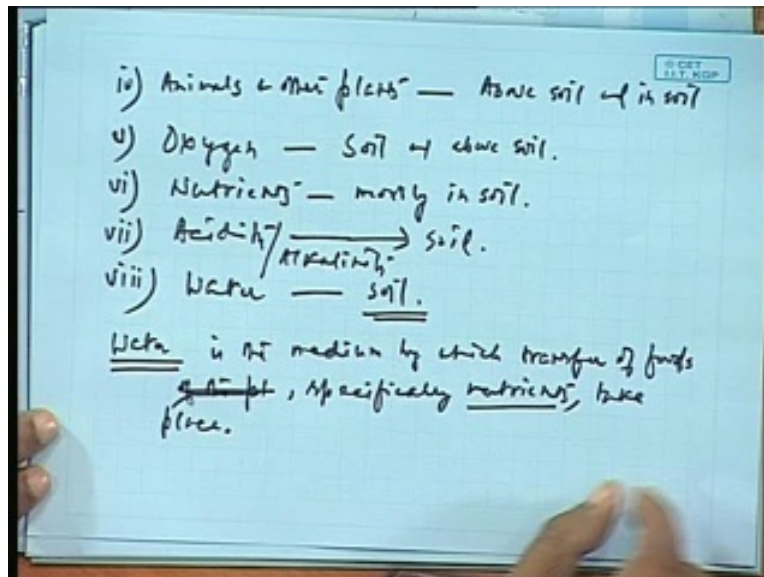 © CET
I.I.T. KGP
iv) Animals & other plants — Above soil and in soil
v) Oxygen — Soil and above soil.
vi) Nutrients — mostly in soil.
vii) Acidity/Alkalinity → Soil.
viii) Water — soil.
Water is the medium by which transfer of foods
, specifically nutrients, take
place.